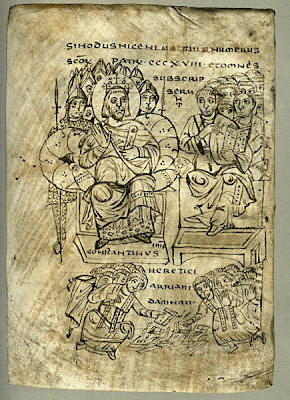 SINODUS NICENI UBI FUIT NUMERUS
SCOR· PATR· CCCXVIII· ET OMNES
SUBSCRIP
SERU
NT
CONSTANTINUS
HERETICI
ARRIANI
DAMNATI